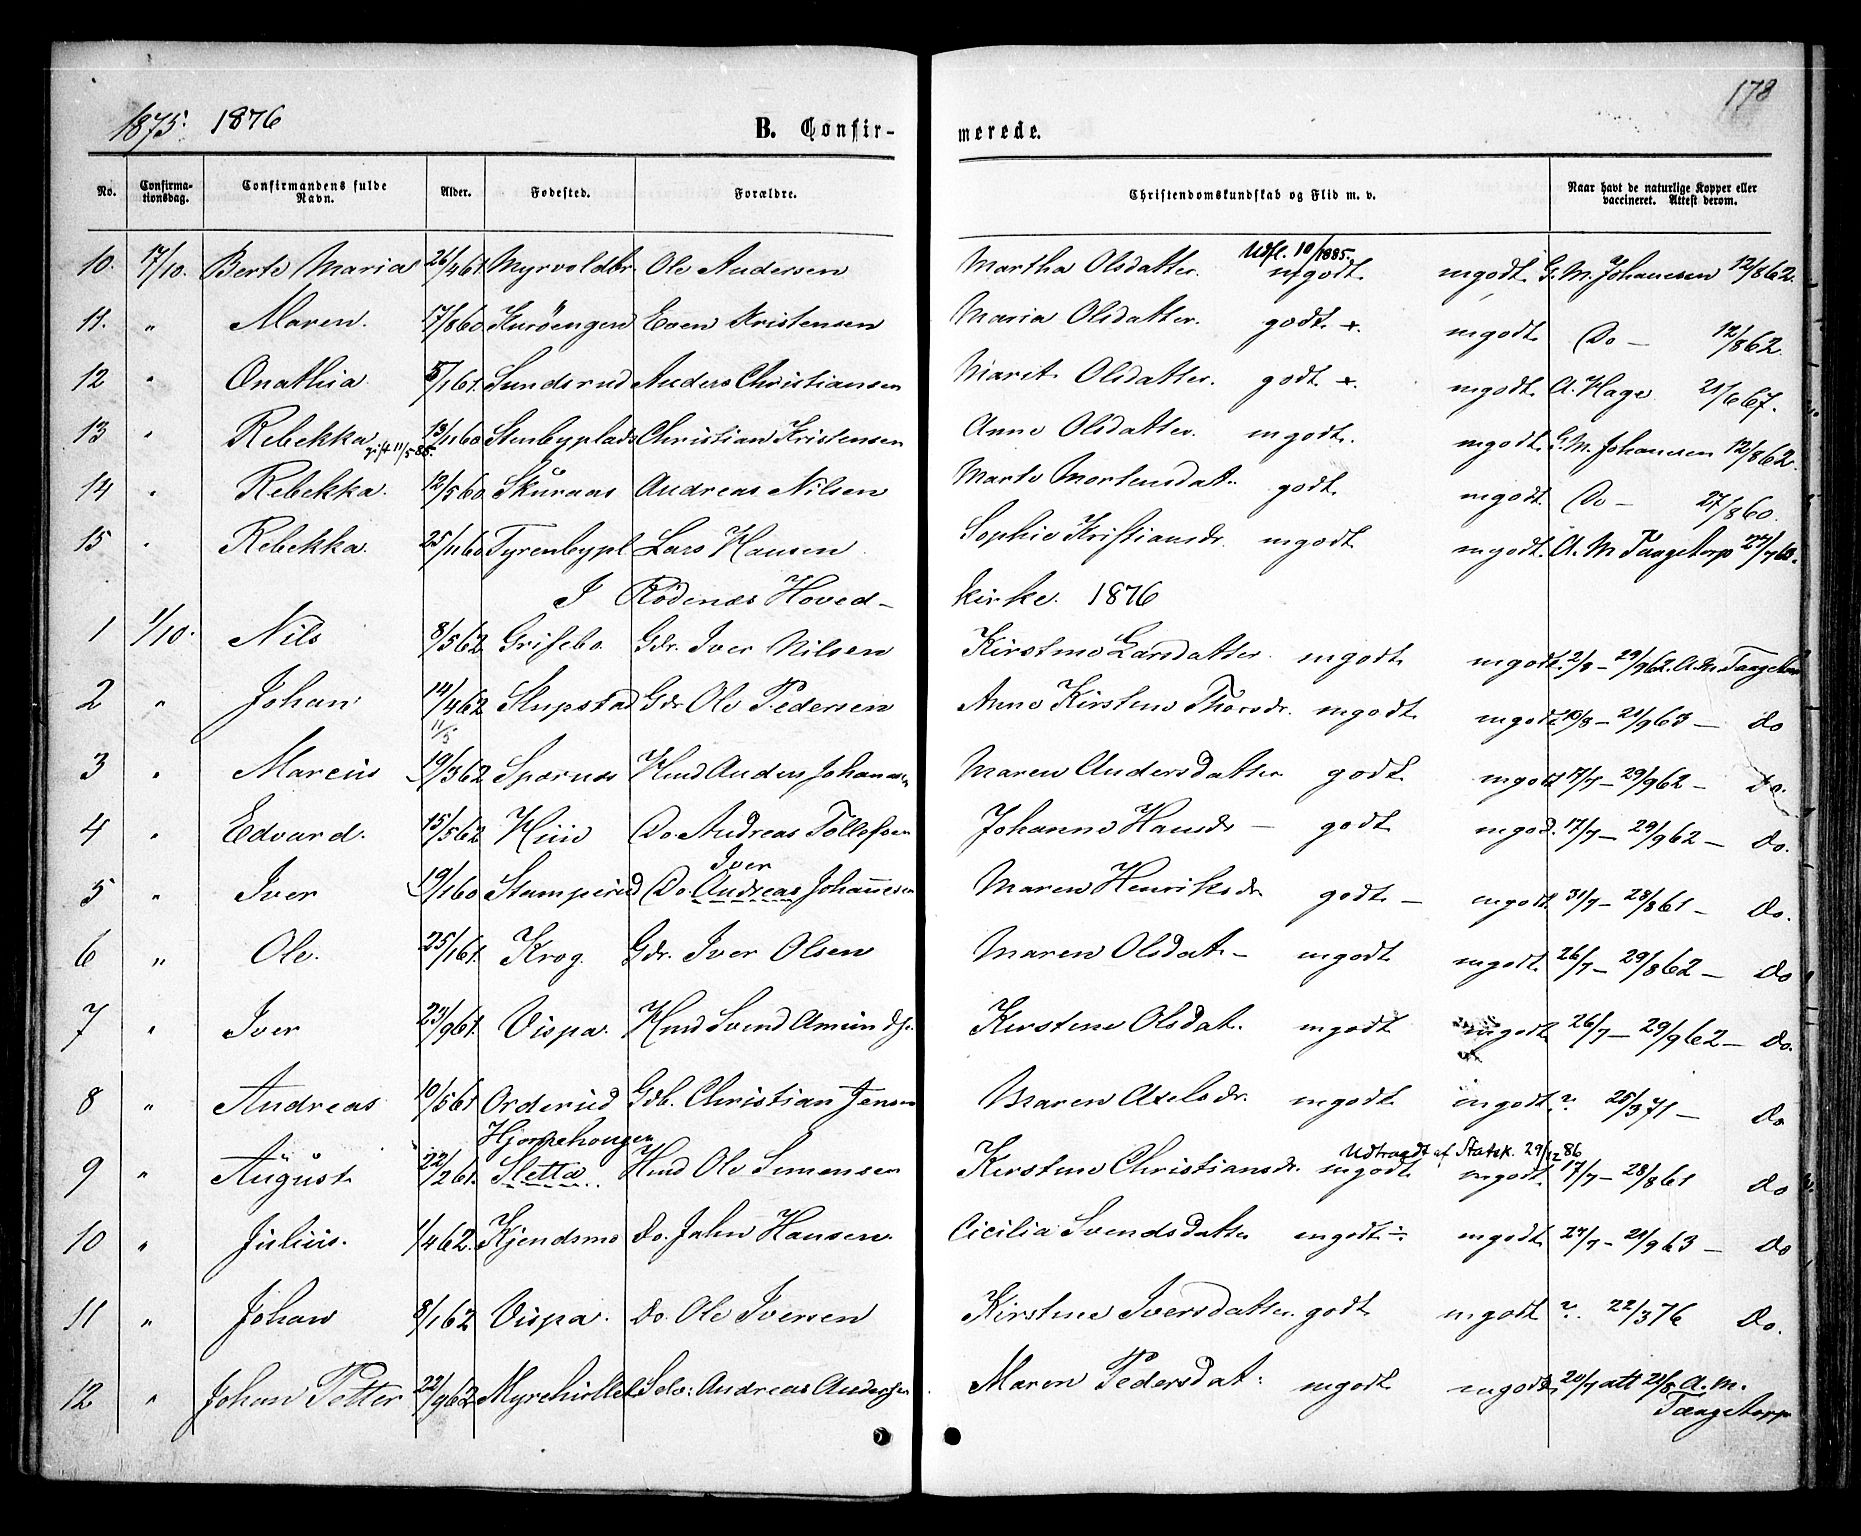 1875. 1876 B. Confir- merede. 178
No. Confirma-tionsdag. Confirmandens fulde Navn. Alder. Fødested. Forældre. Christendomskundskab og Flid m. v. Naar havt de naturlige Kopper eller vaccineret. Attest derom.
Udfl. 10/1885.
10. 17/10. Berte Maria 26/4 61. Myrvoldbr. Ole Andersen Martha Olsdatter. mgodt. mgodt. G. M. Johansen 12/8 62.
11. " Maren. 17/8 60 Kuröengen Even Kristensen Maria Olsdatter. godt +. mgodt. Do — 12/8 62.
12 " Onathia 5/1 61. Sundsrud Anders Christiansen Marit Olsdatter. godt +. mgodt. A. Hage 21/6 67.
13 " Rebekka 13/11 60 Stenbyplads Christian Kristensen Anne Olsdatter. mgodt. mgodt. G. M. Johansen 12/8 62.
gift 11/5 85.
14 " Rebekka. 12/5 60 Skuraas Andreas Nilsen Marte Mortensdat. godt. mgodt. Do — 27/8 60.
15 " Rebekka. 25/11 60 Tyrenbypl Lars Hansen Sophie Kristiansdr. mgodt mgodt. A. M Tangetorp 27/7 63.
I Rödenæs Hoved- kirke. 1876
1 1/10. Nils 8/5 62. Grisebo. Gdr. Iver Nilsen Kirstine Larsdatter. mgodt mgodt. 2/8 — 29/9 62. A. M Tangetorp
2 " Johan 14/4 62 Slupstad Gdr Ole Pedersen Anne Kirstine Thorsdr. mgodt mgodt 10/8 — 21/9 63 — do
11/5
3 " Marcus 19/3 62 Spærnæs Hmd Anders Johansen Maren Andersdatter godt mgodt 17/7 — 29/9 62 — Do.
4 " Edvard. 15/5 62 Hiie Do Andreas Tollefsen Johanne Hansdr — godt mgod. 17/7 — 29/9 62 — Do.
Iver
5 " Iver 19/1 60 Stumperud Do. Andreas Johannesen Maren Henriksdr godt — mgodt 31/7 — 28/8 61 — Do.
6 " Ole. 25/1 61. Krog. Gdr. Iver Olsen Maren Olsdat. — mgodt mgodt. 26/7 — 29/8 62 — Do
7 " Iver 23/9 61. Vispa. Hmd Svend Amundsr. Kirstine Olsdat. mgodt mgodt 26/7 — 29/9 62 — Do.
8 " Andreas 10/5 61 Orderud Gdb. Christian Jensen Maren Axelsdr. mgodt mgodt. ? 25/3 71 — Do
Hjorpehougen Udtraadt af Statsk. 29/12 86
9 " August 22/2 61. Sletta. Hmd Ole Simensen Kirstine Christiansdr. mgodt mgodt. 17/7 — 28/8 61 Do
10 " Julius. 1/4 62. Kjendsmo Do. John Hansen. Cicilia Svendsdatter mgodt ÷ mgodt 27/7 — 21/9 63 — Do
11 " Johan 8/1 62 Vispa. Do. Ole Iversen Kirstine Iversdatter. godt mgodt ?. 22/3 76 Do.
12 " Johan Petter 22/9 62 Myrehvilet Selv: Andreas Andersen Maren Pedersdat. mgodt mgodt. 20/7 att 21/8 A. M.
Tangetorp